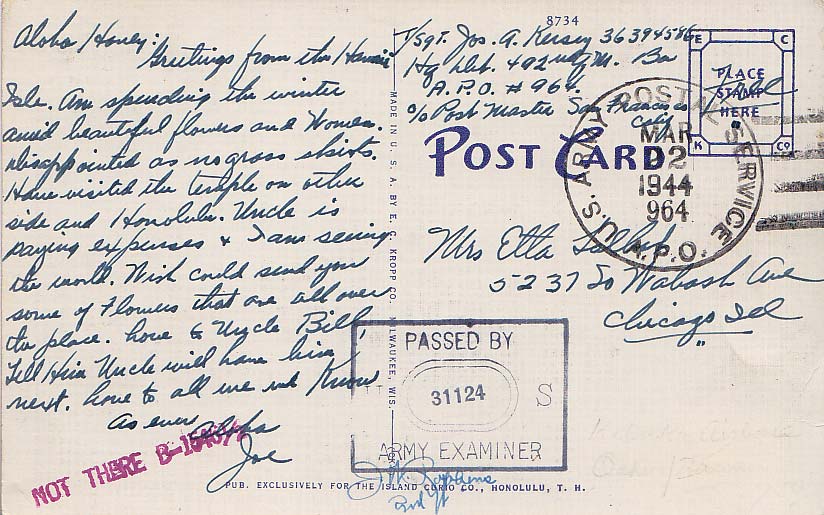 Aloha Honey:
Greetings from the Hawaii
Isle. Am spending the winter
amid beautiful flowers and Women.
disappointed as no grass skirts.
Have visited the temple on other
side and Honolulu. Uncle is
paying expenses & I am seeing
the world. Wish could send you
some of Flowers that are all over
the place. Love to Uncle Bill
Tell Him Uncle will have him
next. Love to all we
Know
As ever Aloha
Joe
NOT THERE
MADE IN U. S. A. BY E. C. KROPP CO., MILWAUKEE, WIS.
8734
T/Sgt. Jos. A. Kersey 36394586
Hq Det. 492
Bn
A.P.O. # 964
c/o Post Master San Francisco
City
POST CARD
E C
PLACE
STAMP
HERE
K Co
U.S. ARMY POSTAL SERVICE A.P.O.
MAR
22
1944
964
Mrs Etta
5237 So Wabash Ave
Chicago Ill
PASSED BY
31124
S
ARMY EXAMINER
PUB. EXCLUSIVELY FOR THE ISLAND CURIO CO., HONOLULU, T. H.